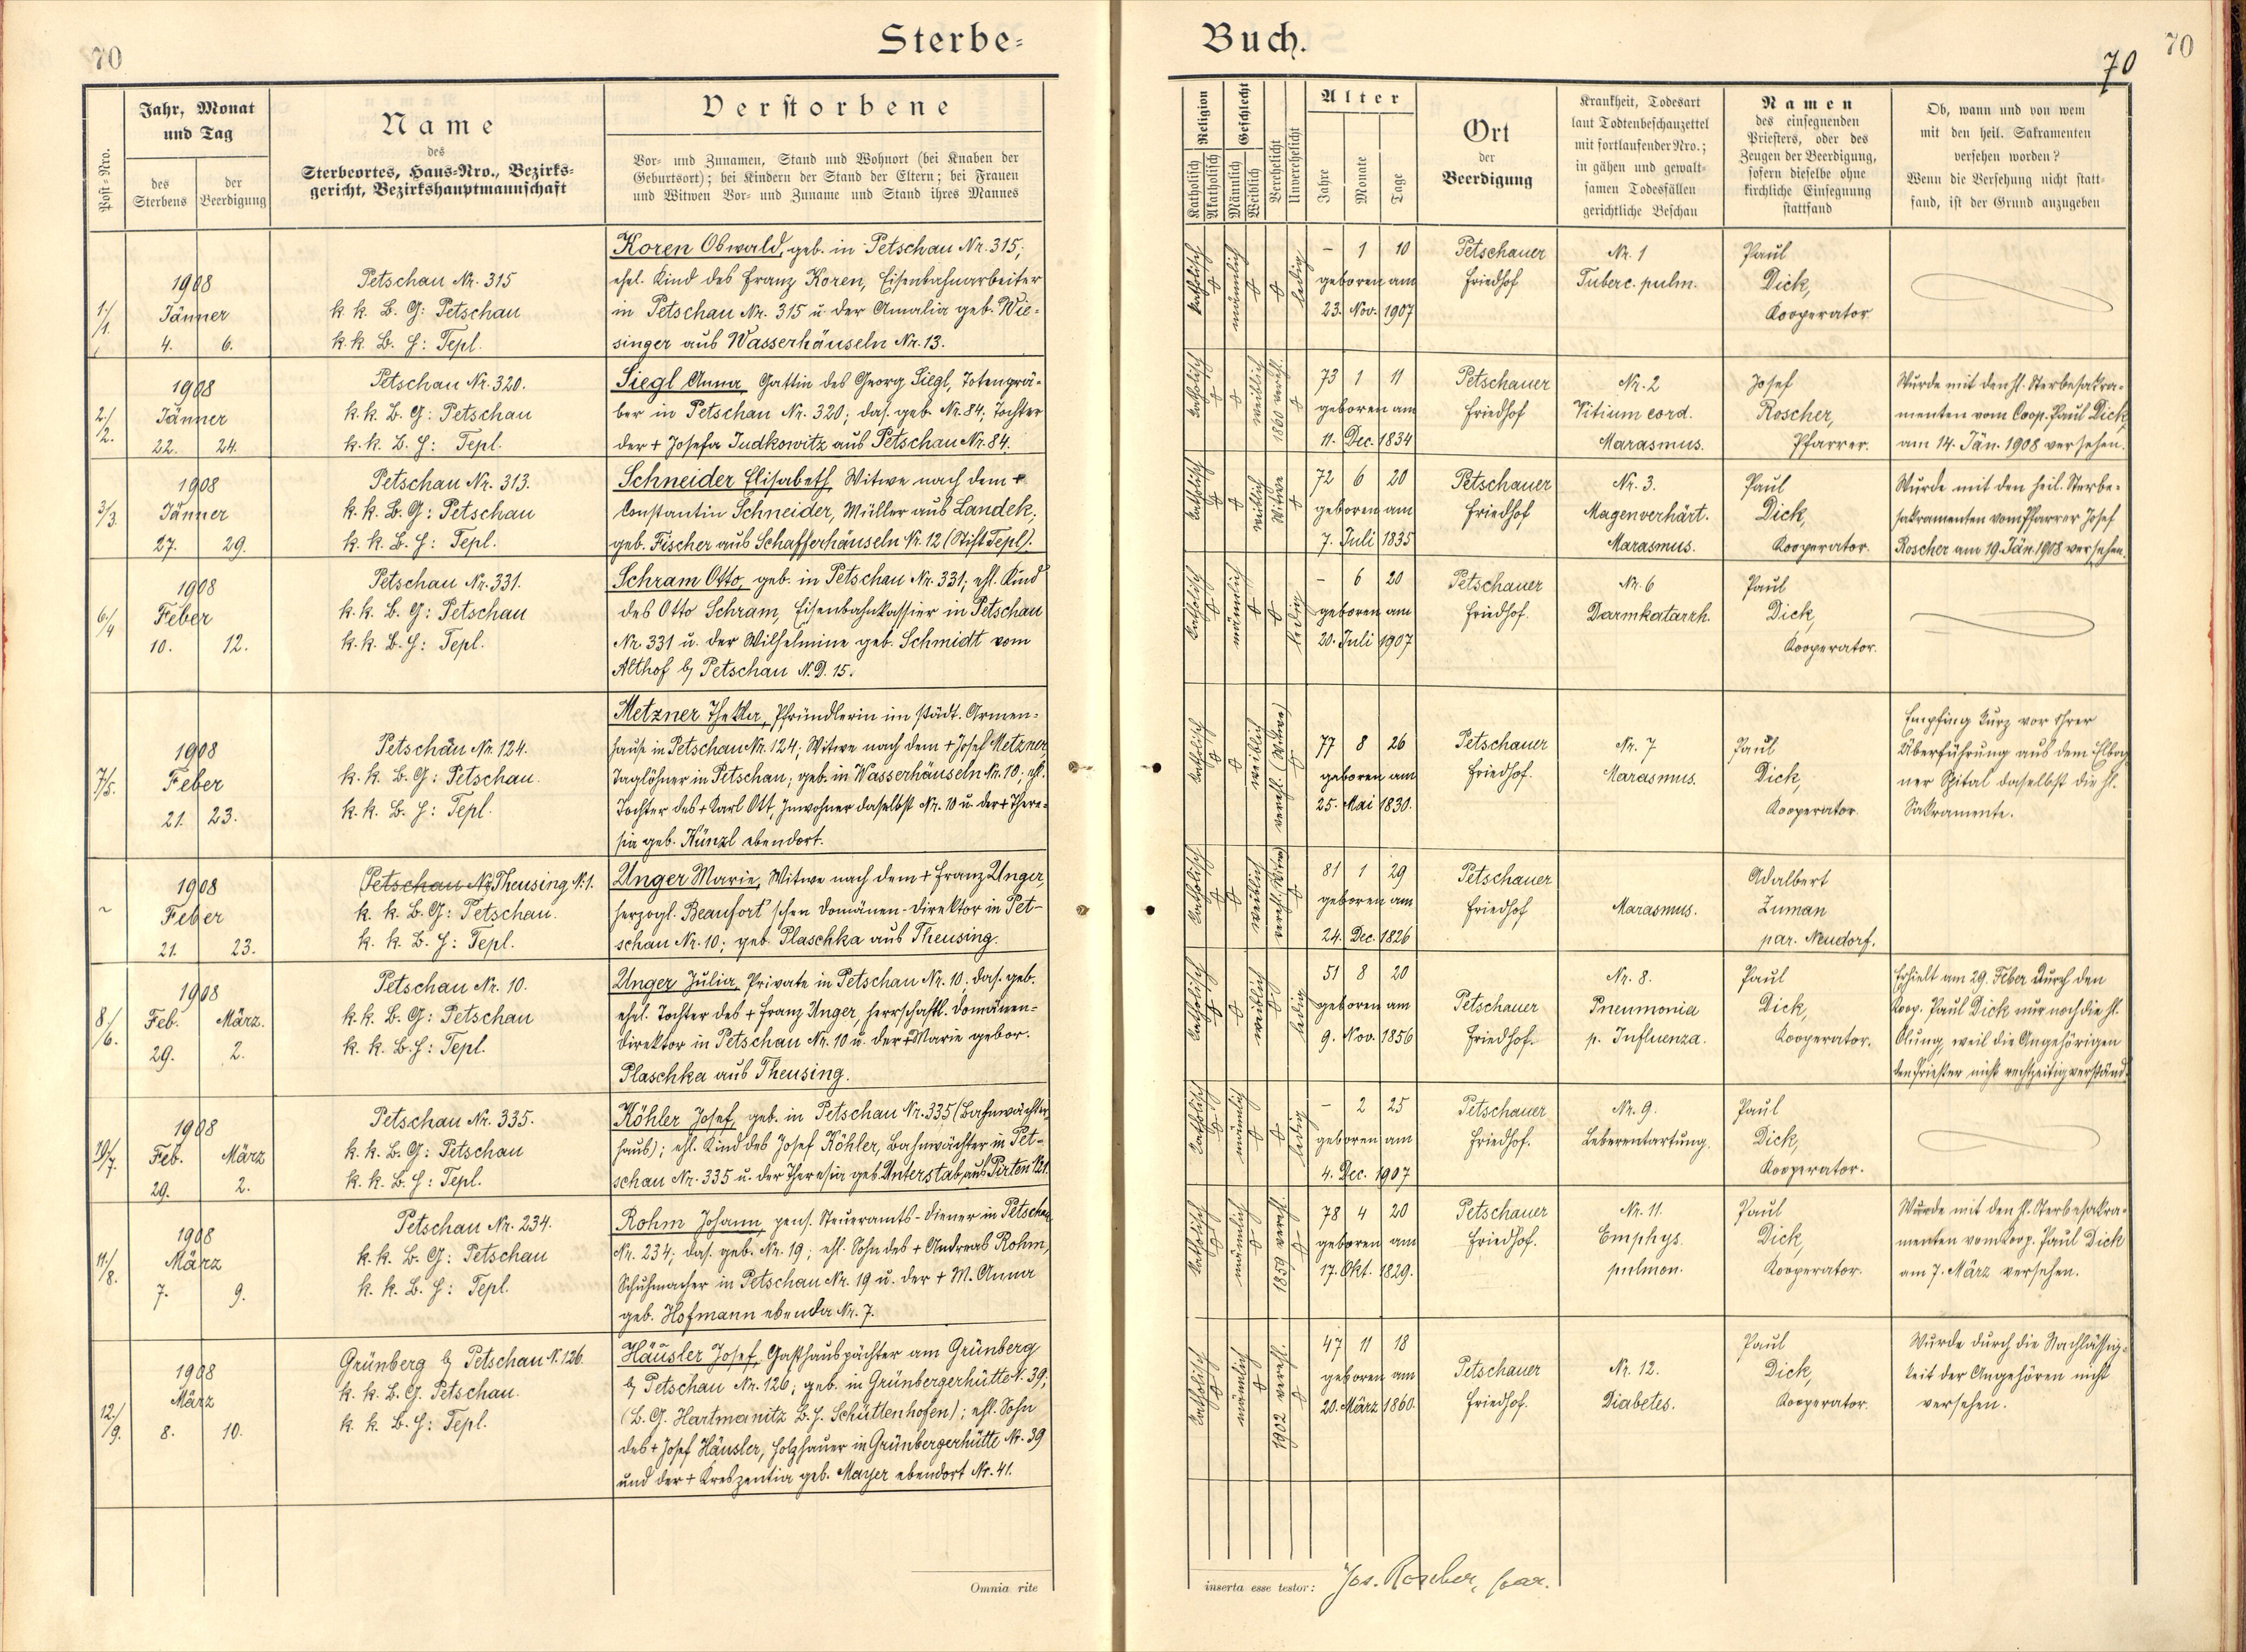 70
Sterbe-
Buch.
70
70
Post-Nro.
Jahr, Monat
und Tag
des
Sterbens
der
Beerdigung
Name
des
Sterbeortes, Haus-Nro., Bezirks-
gericht, Bezirkshauptmannschaft
Verstorbene
Vor- und Zunamen, Stand und Wohnort (bei Knaben der
Geburtsort); bei Kindern der Stand der Eltern; bei Frauen
und Witwen Vor- und Zuname und Stand ihres Mannes
Religion
Katholisch
Akatholisch
Geschlecht
Männlich
Weiblich
Verehelicht
Unverehelicht
Alter
Jahre
Monate
Tage
Ort
der
Beerdigung
Krankheit, Todesart
laut Todtenbeschauzettel
mit fortlaufender Nro.;
in gähen und gewalt-
samen Todesfällen
gerichtliche Beschau
Namen
des einsegnenden
Priesters, oder des
Zeugen der Beerdigung,
sofern dieselbe ohne
kirchliche Einsegnung
stattfand
Ob, wann und von wem
mit den heil. Sakramenten
versehen worden?
Wenn die Versehung nicht statt-
fand, ist der Grund anzugeben
1./1.
1908
Jänner
4. 6.
Petschau Nr. 315
k. k. B. G: Petschau
k. k. B. H: Tepl.
Koren Oswald, geb. in Petschau Nr. 315;
ehel. Kind des Franz Koren, Eisenbahnarbeiter
in Petschau Nr. 315 u. der Amalia geb. Wie-
singer aus Wasserhäuseln Nr. 13.
katholisch
männlich
ledig
- 1 10
geboren am
23. Nov. 1907
Petschauer
Friedhof
Nr. 1
Tuberc. pulm.
Paul
Dick,
Kooperator
2./2.
1908
Jänner
22. 24.
Petschau Nr. 320.
k. k. B. G: Petschau
k. k. B. H: Tepl.
Siegl Anna, Gattin des Georg Siegl, Totengrä-
ber in Petschau Nr. 320; das. geb. Nr. 84; Tochter
der + Josefa Judkowitz aus Petschau Nr. 84.
katholisch
weiblich
1860 verehl.
73 1 11
geboren am
11. Dec. 1834
Petschauer
Friedhof
Nr. 2
Vitium cord.
Marasmus.
Josef
Roscher,
Pfarrer.
Wurde mit den hl. Sterbesakra-
menten vom Coop. Paul Dick
am 14. Jän. 1908 versehen.
3/3.
1908
Jänner
27. 29.
Petschau Nr. 313.
k. k. B. G: Petschau
k. k. B. H: Tepl.
Schneider Elisabeth, Witwe nach dem +
Constantin Schneider, Müller aus Landek;
geb. Fischer aus Schafferhäuseln Nr. 12 (Stift Tepl).
katholisch
weiblich
Witwe
72 6 20
geboren am
7. Juli 1835
Petschauer
Friedhof
Nr. 3.
Magenverhärt.
Marasmus.
Paul
Dick,
Kooperator.
Wurde mit den heil. Sterbe-
sakramenten vom Pfarrer Josef
Roscher am 19. Jän. 1908 versehen.
6./4
1908
Feber
10. 12.
Petschau Nr. 331.
k. k. B. G: Petschau
k. k. B. H: Tepl.
Schram Otto, geb. in Petschau Nr. 331; ehl. Kind
des Otto Schram, Eisenbahnkassier in Petschau
Nr. 331 u. der Wilhelmine geb. Schmidt vom
Althof b/ Petschau N. D. 15.
katholisch
männlich
ledig
- 6 20
geboren am
20. Juli 1907
Petschauer
Friedhof.
Nr. 6
Darmkatarrh.
Paul
Dick,
Kooperator.
7/5.
1908
Feber
21. 23.
Petschau Nr. 124.
k. k. B. G: Petschau.
k. k. B. H: Tepl.
Metzner Thekla, Pfründlerin im städt. Armen-
hause in Petschau Nr. 124; Witwe nach dem + Josef Metzner
Taglöhner in Petschau; geb. in Wasserhäuseln Nr. 10; ehl.
Tochter des + Karl Ott, Inwohner daselbst Nr. 10 u. der + There-
sia geb. Künzl ebendort.
katholisch
weiblich
verehl. (Witwe)
77 8 26
geboren am
25. Mai 1830.
Petschauer
Friedhof.
Nr. 7
Marasmus.
Paul
Dick,
Kooperator.
Empfing kurz vor ihrer
Überführung aus dem Elbog
ner Spital daselbst die hl.
Sakramente.
~
1908
Feber
21. 23.
Petschau Nr. Theusing N. 1.
k. k. B. G: Petschau.
k. k. B. H: Tepl.
Unger Marie, Witwe nach dem + Franz Unger,
herzogl. Beaufort'schen Domänen-Direktor in Pet-
schau Nr. 10; geb. Plaschka aus Theusing.
katholisch
weiblich
81 1 29
geboren am
24. Dec. 1826
Petschauer
Friedhof
Marasmus.
Adalbert
Zuman
par. Neudorf.
8./6.
1908
Feb. März.
29. 2.
Petschau Nr. 10.
k. k. B. G: Petschau
k. k. B. H: Tepl.
Unger Julia, Private in Petschau Nr. 10, das. geb.
ehel. Tochter des + Franz Unger, herrschaftl. Domänen-
direktor in Petschau Nr. 10 u. der + Marie gebor.
Plaschka aus Theusing.
katholisch
weiblich
ledig
51 8 20
geboren am
9. Nov. 1856
Petschauer
Friedhof.
Nr. 8.
Pneumonia
p. Influenza.
Paul
Dick,
Kooperator.
Erhielt am 29. Feber durch den
Koop. Paul Dick nur noch die hl.
Ölung, weil die Angehörigen
den Priester nicht rechtzeitig verständ.
/7.
1908
Feb. März
29. 2.
Petschau Nr. 335.
k. k. B. G: Petschau
k. k. B. H: Tepl.
Köhler Josef, geb. in Petschau Nr. 335 (Bahnwächter
haus); ehl. Kind des Josef Köhler, Bahnwächter in Pet-
schau Nr. 335 u. der Theresia geb. Unterstab, aus Pirten
katholisch
männlich
ledig
- 2 25
geboren am
4. Dec. 1907
Petschauer
Friedhof.
Nr. 9.
Leberentartung.
Paul
Dick,
Kooperator.
11./8.
1908
März
7. 9.
Petschau Nr. 234.
k. k. B. G: Petschau
k. k. B. H: Tepl.
Rohm Johann, pens. Steueramts-Diener in Petschau
Nr. 234; das. geb. Nr. 19; ehl. Sohn des + Andreas Rohm,
Schuhmacher in Petschau Nr. 19 u. der + M. Anna
geb. Hofmann ebenda Nr. 7.
katholisch
männlich
1859 verehl.
78 4 20
geboren am
17. Okt. 1829.
Petschauer
Friedhof.
Nr. 11.
Emphys.
pulmon.
Paul
Dick,
Kooperator.
Wurde mit den hl. Sterbesakra-
menten vom Koop. Paul Dick
am 7. März versehen.
12./9.
1908
März
8. 10.
Grünberg b/ Petschau N. 126.
k. k. B. G. Petschau.
k. k. B. H: Tepl.
Häusler Josef, Gasthauspächter am Grünberg
b/ Petschau Nr. 126; geb. in Grünbergerhütte N. 39;
(B. G. Hartmanitz B. H. Schüttenhofen); ehl. Sohn
des + Josef Häusler, Holzhauer in Grünbergerhütte Nr. 39
und der + Kreszentia geb. Mayer ebendort Nr. 41.
katholisch
männlich
1902 verehl.
47 11 18
geboren am
20. März 1860.
Petschauer
Friedhof.
Nr. 12.
Diabetes.
Paul
Dick,
Kooperator.
Wurde durch die Nachlässig-
keit der Angehören nicht
versehen.
Omnia rite
inserta esse testor: Jos. Roscher, par.